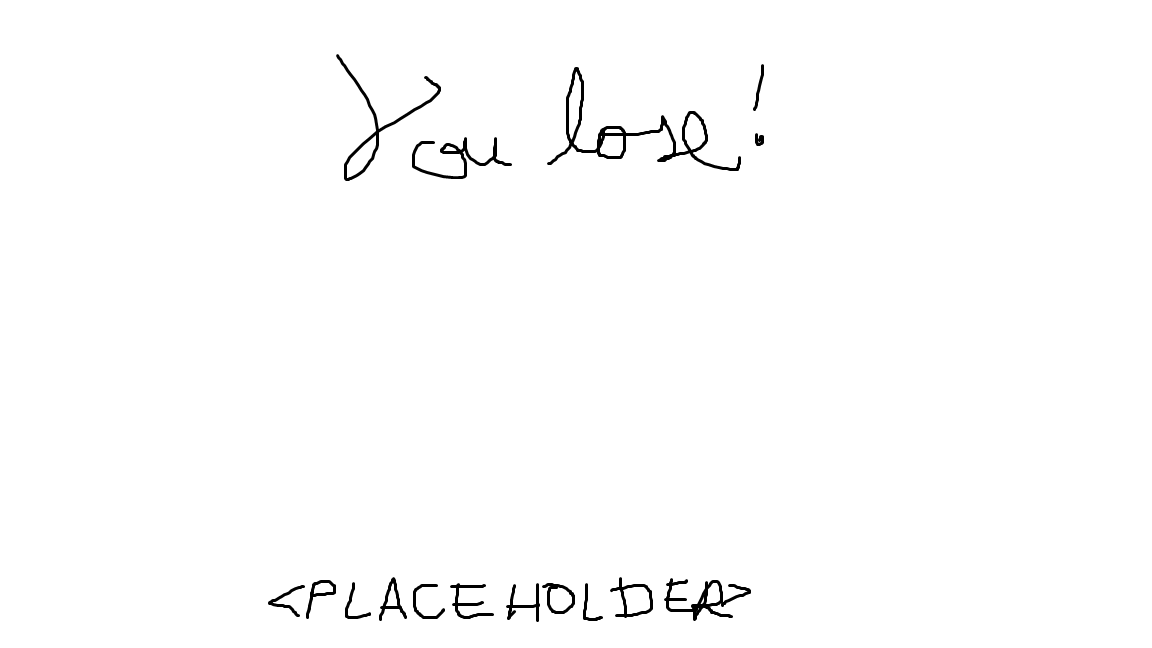 You lose!
<PLACEHOLDER>